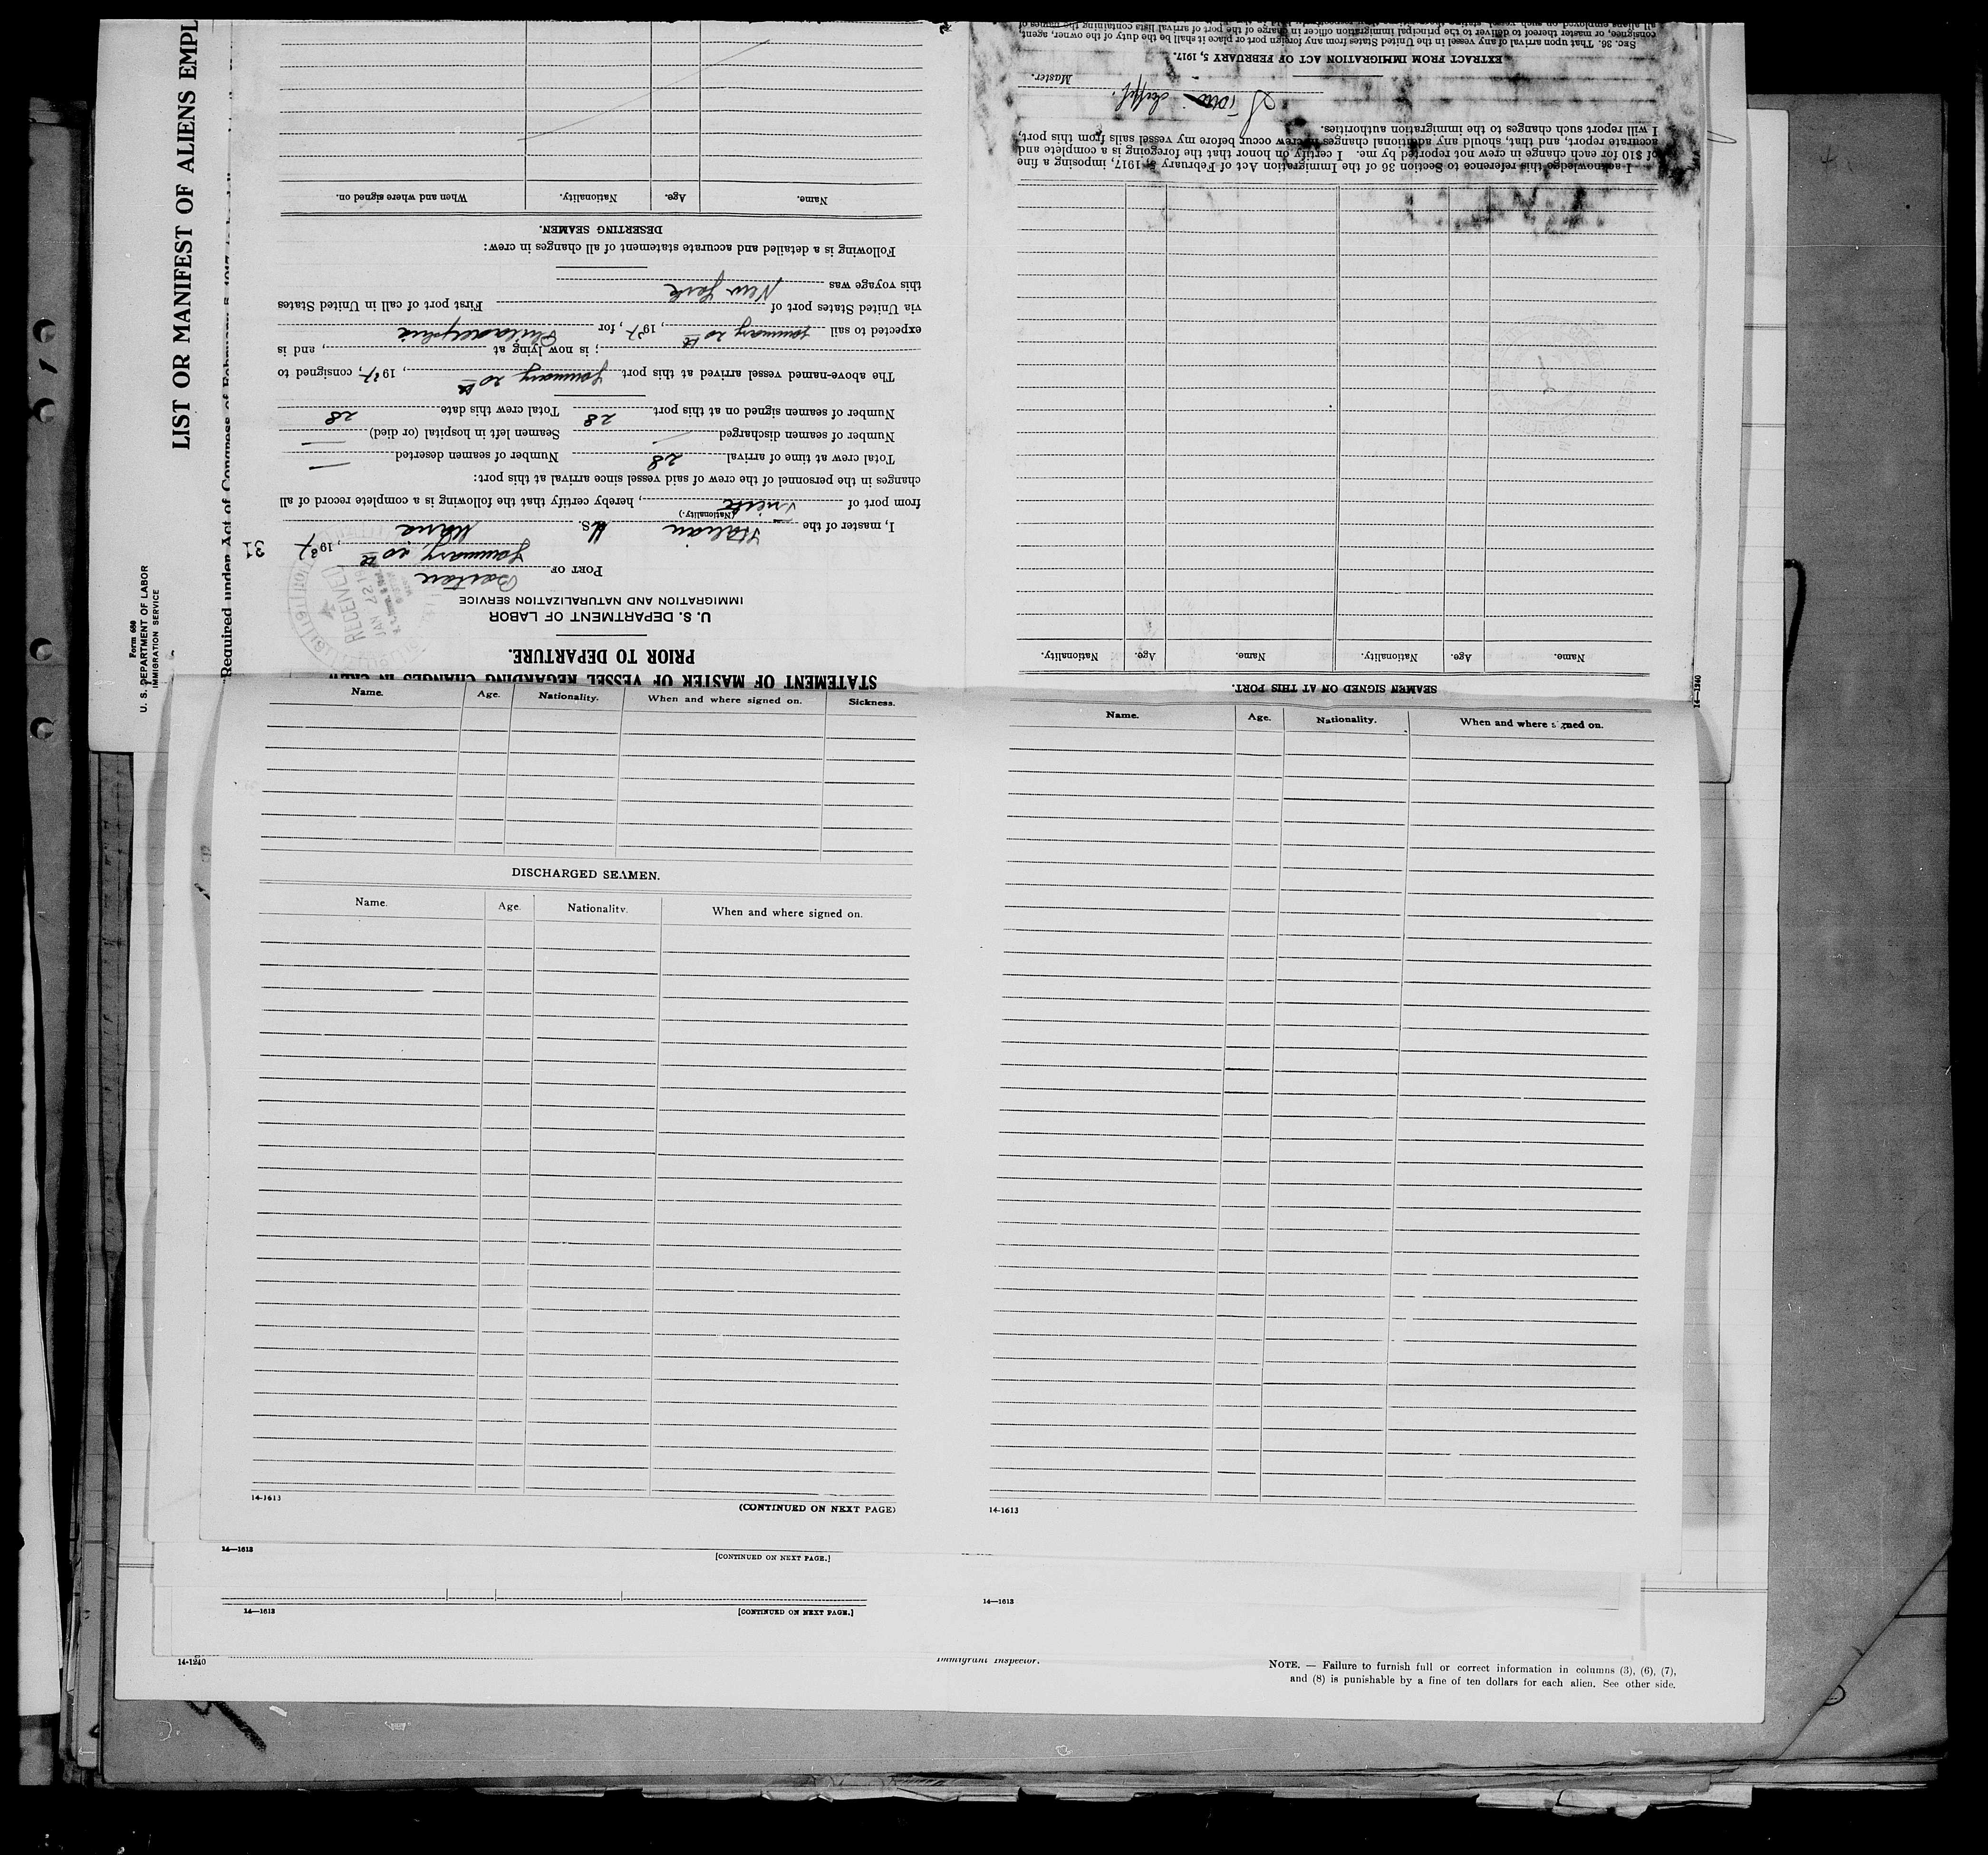 LIST OR MANIFEST OF ALIENS EMPL
Required under Act of Congress of February 5, 1917
Form 680
U. S. DEPARTMENT OF LABOR
IMMIGRATION SERVICE
STATEMENT OF MASTER OF VESSEL REGARDING CHANGES IN CREW
PRIOR TO DEPARTURE.
U. S. DEPARTMENT OF LABOR
IMMIGRATION AND NATURALIZATION SERVICE
RECEIVED
JAN 22 19
PORT OF Boston
January 20th, 1937
31
I, master of the Italian S.S. Maria
(Nationality.)
from port of Trieste, hereby certify that the following is a complete record of all
changes in the personnel of the crew of said vessel since arrival at this port:
Total crew at time of arrival 28 Number of seamen deserted —
Number of seamen discharged — Seamen left in hospital (or died) —
Number of seamen signed on at this port 28 Total crew this date 28
The above-named vessel arrived at this port January 20th, 1937, consigned to
; is now lying at , and is
expected to sail January 20th, 1937, for Philadelphia
via United States port of First port of call in United States
this voyage was New York
Following is a detailed and accurate statement of all changes in crew:
DESERTING SEAMEN.
Name. Age. Nationality. When and where signed on.
SEAMEN SIGNED ON AT THIS PORT.
Name. Age. Nationality. Name. Age. Nationality.
I acknowledge this reference to Section 36 of the Immigration Act of February 5, 1917, imposing a fine
of $10 for each change in crew not reported by me. I certify on honor that the foregoing is a complete and
accurate report, and that, should any additional changes in crew occur before my vessel sails from this port,
I will report such changes to the immigration authorities.
Master.
EXTRACT FROM IMMIGRATION ACT OF FEBRUARY 5, 1917.
SEC. 36. That upon arrival of any vessel in the United States from any foreign port or place it shall be the duty of the owner, agent,
consignee, or master thereof to deliver to the principal immigration officer in charge of the port of arrival lists containing the names of
14—1240
Name. Age. Nationality. When and where signed on. Sickness.
DISCHARGED SEAMEN.
Name. Age. Nationality. When and where signed on.
14-1613
(CONTINUED ON NEXT PAGE)
Name. Age. Nationality. When and where signed on.
14-1613
14—1613
[CONTINUED ON NEXT PAGE.]
14—1613
[CONTINUED ON NEXT PAGE.]
14—1613
14-1240
Immigrant Inspector.
NOTE. — Failure to furnish full or correct information in columns (3), (6), (7),
and (8) is punishable by a fine of ten dollars for each alien. See other side.